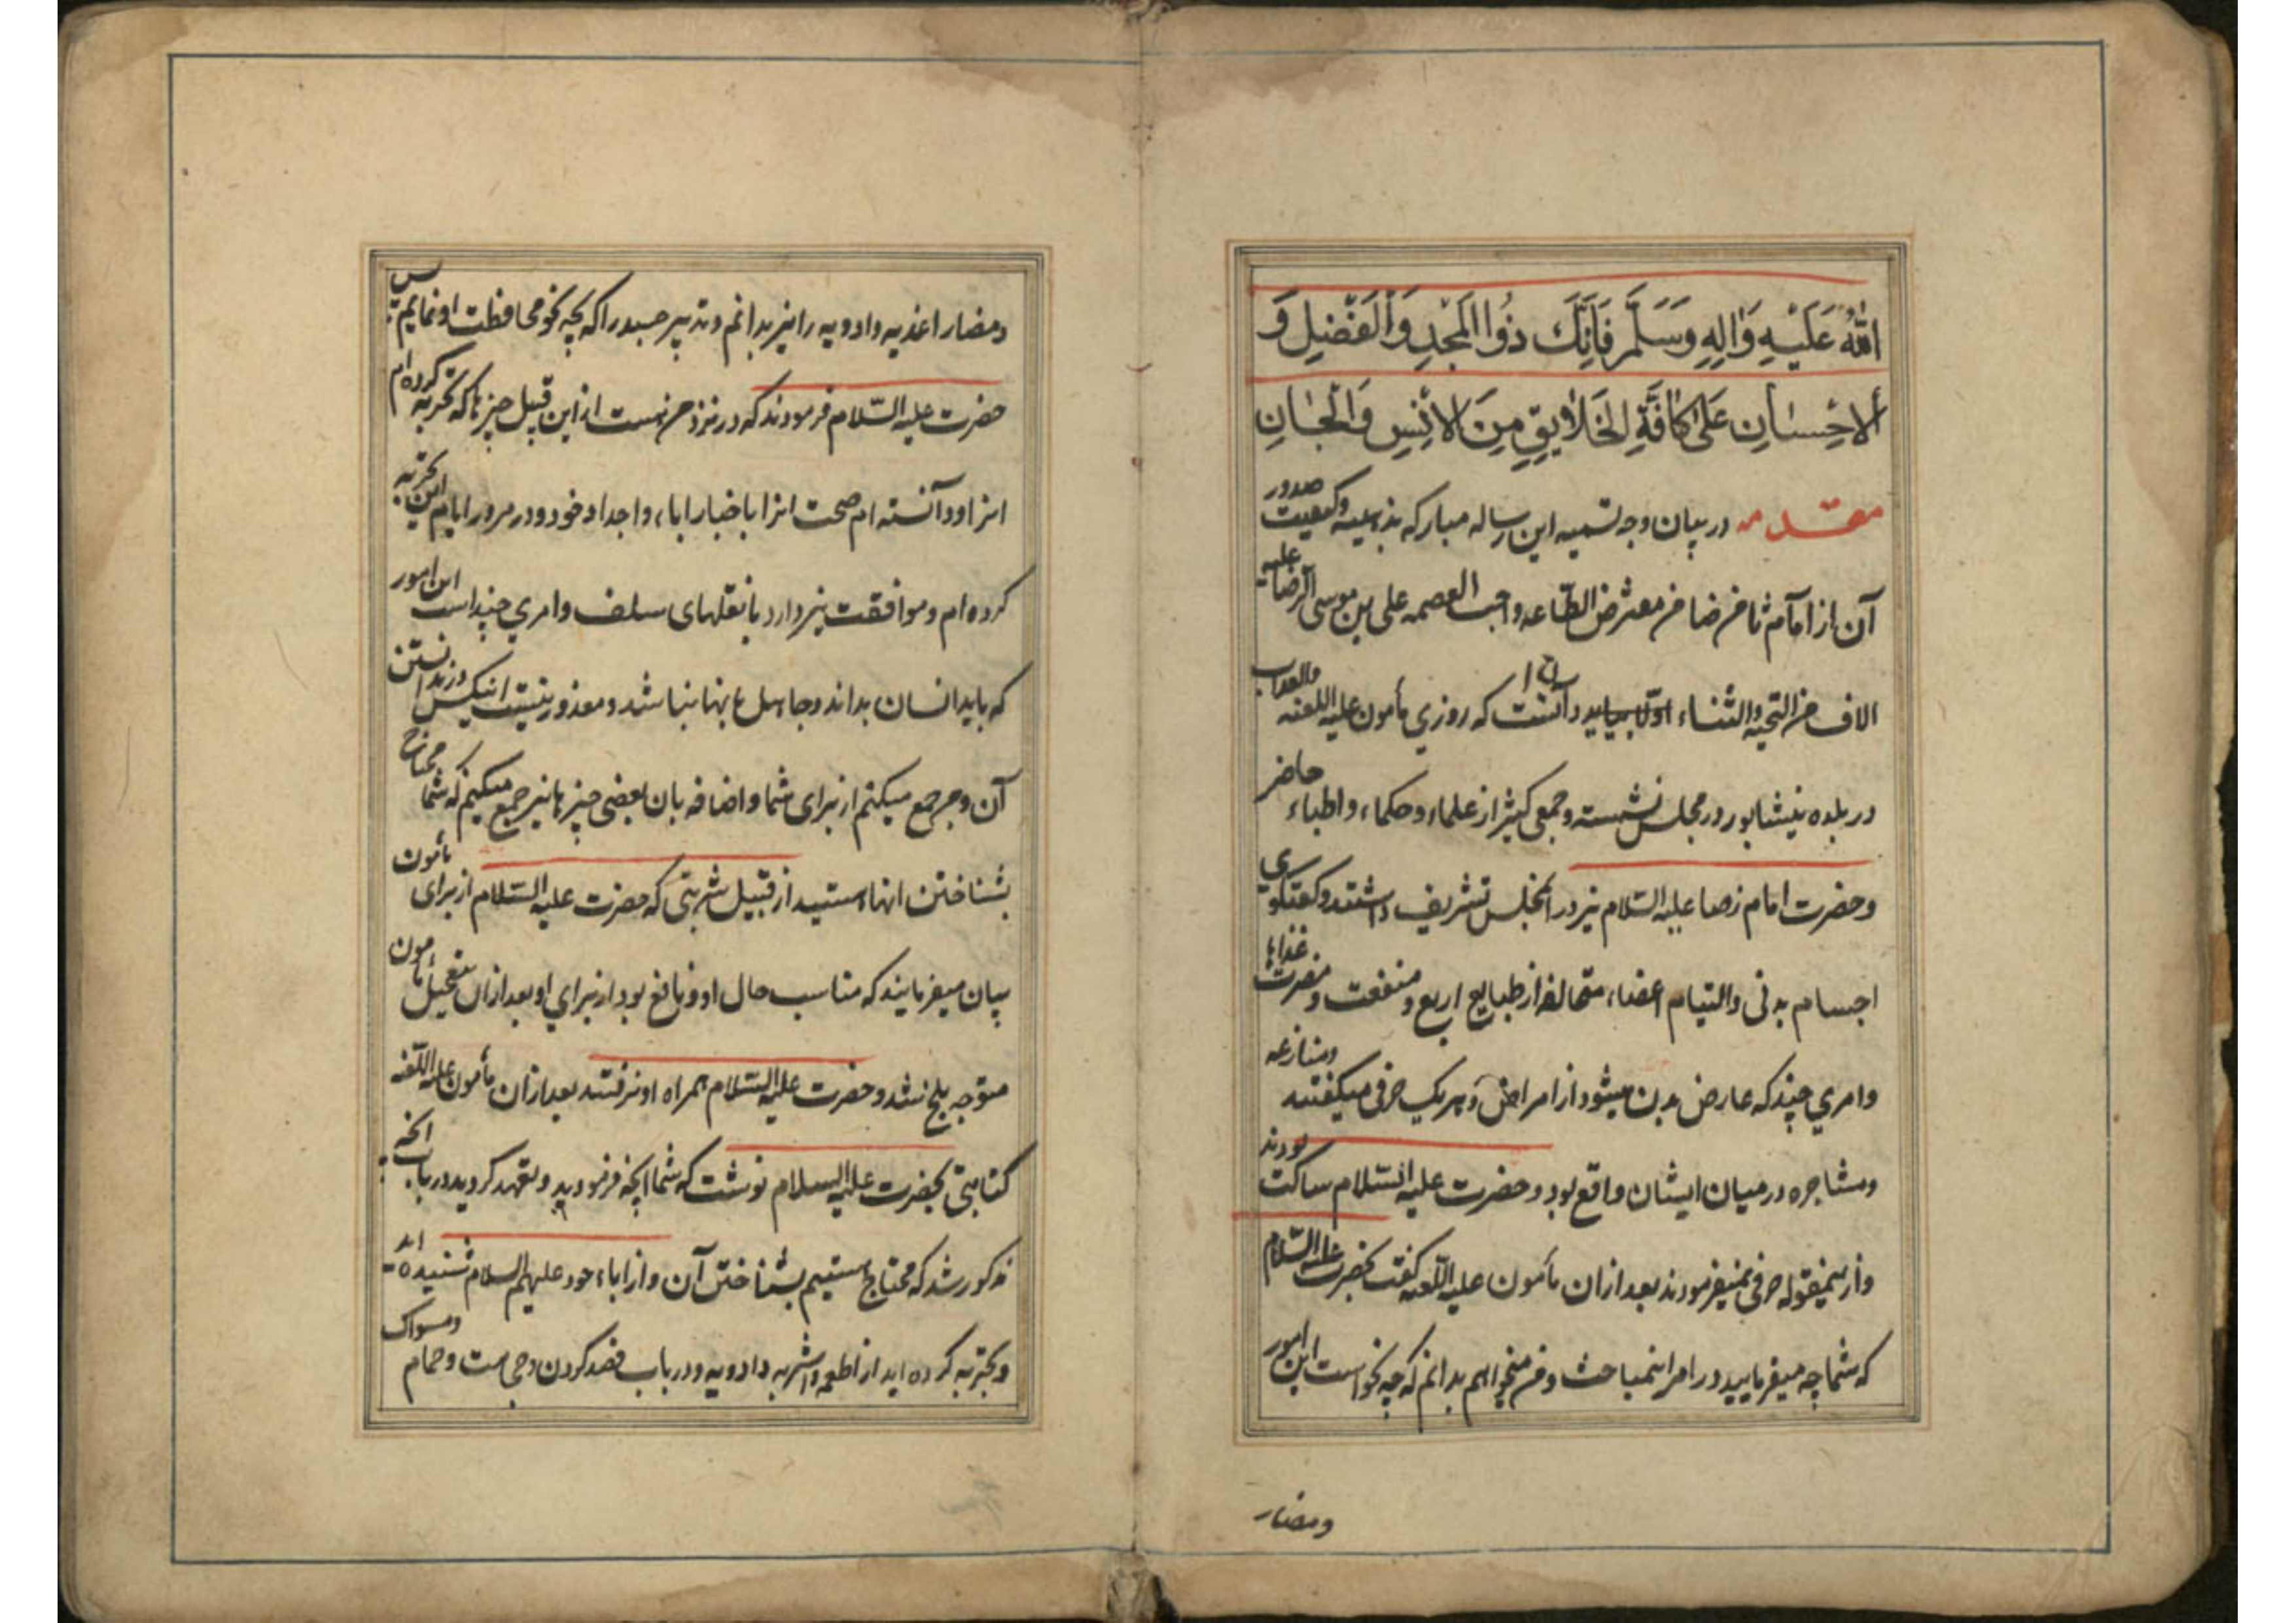 اللهُ عَلَيْهِ وَاٰلِهِ وَسَلَّمَ فَاِنَّكَ ذُوا الْمَجْدِ وَالْفَضْلِ وَ
الْاِحْسٰانِ عَلىٰ كٰافَّةِ الْخَلٰايِقِ مِنَ الْاِنْسِ وَالْجٰانِ
مقدمه در بيان وجه تسميه اين رساله مباركه بذهبيه وكيفيت صدور
آن از امام ثامن ضامن مفترض الطّاعه واجب العصمه على بن موسى الرضا عليه
الاف من التحيه والثناء اولا ببايد دانست كه روزي مأمون عليه اللعنه والعذاب
در بلده نيشابور در مجلس نشسته وجمعى كثير از علماء وحكماء واطباء حاضر
وحضرت امام رضا عليه السّلام نيز در انمجلس تشريف داشتند وكفتكوى
اجسام بدنى والتيام اعضاء متخالفه از طبايع اربع ومنفعت ومضرت غذاها
وامري چند كه عارض بدن ميشود از امراض وهريك حرفى ميكفتند ومنازعه
ومشاجره در ميان ايشان واقع بود وحضرت عليه السّلام ساكت بودند
وازينمقوله حرفى نميفرمودند بعد ازان مأمون عليه اللّعنه كفت بحضرت عليه السّلام
كه شما چه ميفرماييد در امر اينمباحث ومن ميخواهم بدانم كه چه نحو است اين امور
ومضار
ومضار اغذيه وادويه را نيز بدانم وتدبير جسد را كه بچه نحو محافظت او نمايم پس
حضرت عليه السّلام فرمودند كه در نزد من هست از اين قبيل چيزها كه تجربه كرده ام
انرا ودانسته ام صحت انرا باخبار اباء واجداد خود ودر مرور ايام اين تجربه
كرده ام وموافقت نيز دارد با نقلهاى سلف وامري چند است اين امور
كه بايد انسان بداند وجاهل بانها نباشد ومعذور نيست انيكس در ندانستن
آن ومن جمع ميكنم از براى شما واضافه بان بعضى چيزها نيز جمع ميكنم كه شما محتاج
بشناختن انها هستيد از قبيل شربتى كه حضرت عليه السّلام از براى مأمون
بيان ميفرمايند كه مناسب حال او ونافع بود از براي او بعد ازان بتعجيل مأمون
متوجه بلخ شد وحضرت عليه السّلام همراه او نرفتند بعد ازان مأمون عليه اللّعنه
كتابتى بحضرت عليه السلام نوشت كه شما انچه فرموديد وتعهد كرديد در باب انچه
مذكور شد كه محتاج هستيم بشناختن آن واز اباء خود عليهم السلام شنيده ايد
وتجربه كرده ايد از اطعمه واشربه وادويه ودر باب فصد كردن وحجامت وحمام ومسواك